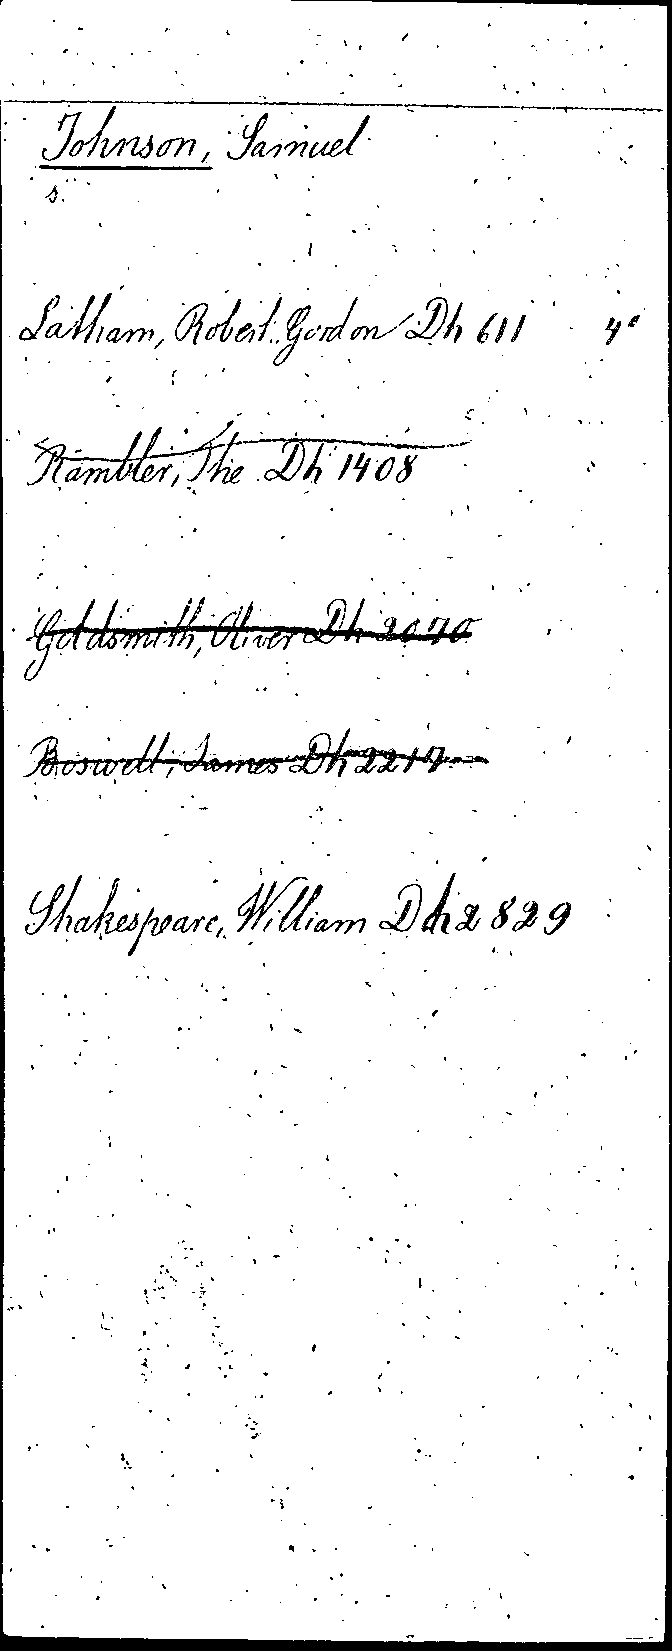 Johnson, Samuel
s.
Latham, Robert Gordon Dh 611 4°
Rambler, The Dh 1408
Goldsmith, Oliver Dh 2070
Boswell, James Dh 2217
Shakespeare, William Dh 2829